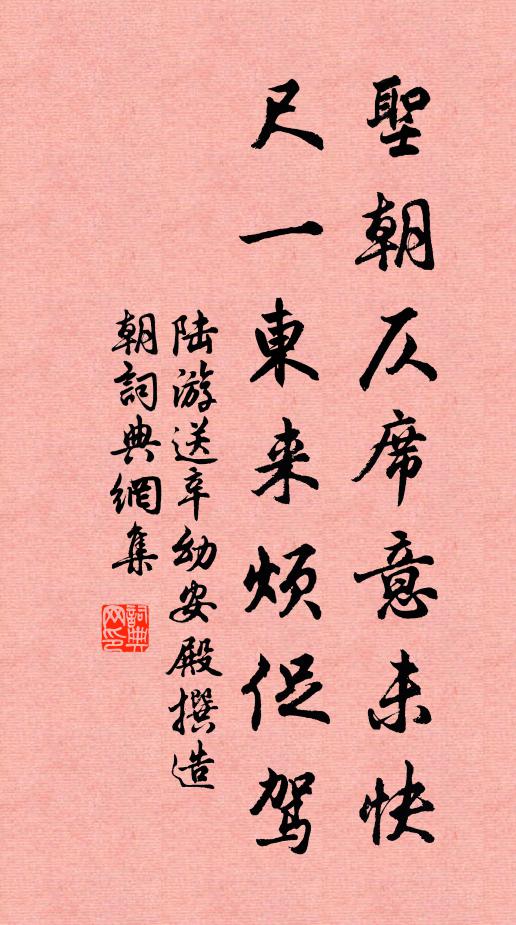 聖朝仄席意未快
尺一東来煩促駕
陆游送辛幼安殿撰造
朝詞典網集
詞典
网印